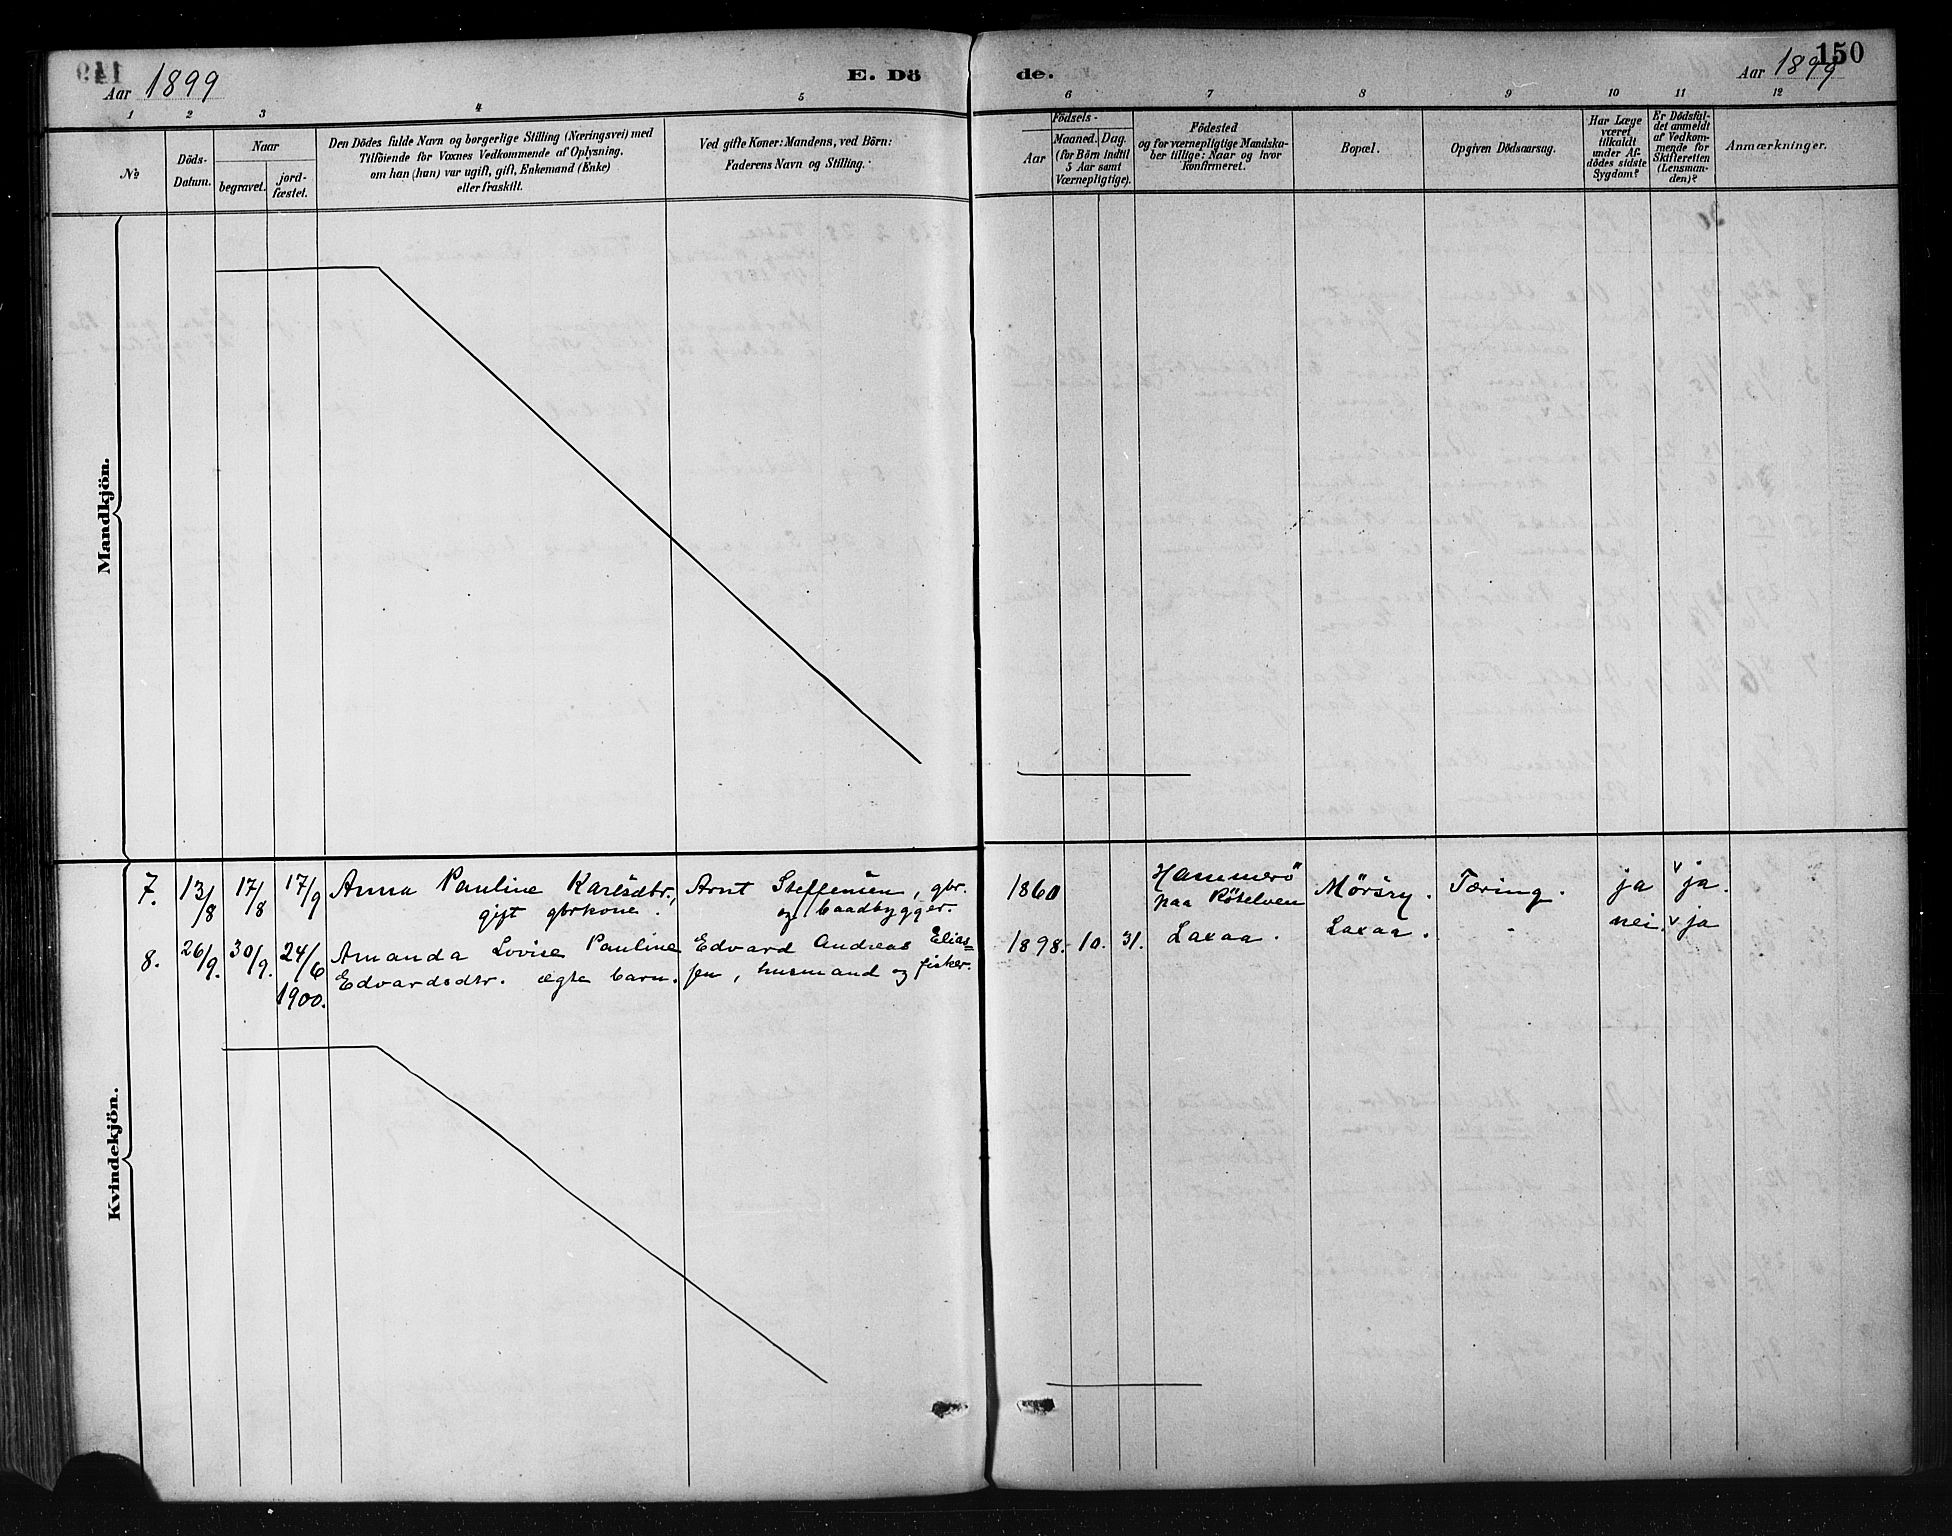 149
Aar 1899
E. Dö
de.
Aar 1899
150
1 2 3 4 5 6 7 8 9 10 11 12
№
Döds-
Datum.
Naar
begravet.
jord-
fæstet.
Den Dödes fulde Navn og borgerlige Stilling (Næringsvei) med
Tilföiende for Voxnes Vedkommende af Oplysning,
om han (hun) var ugift, gift, Enkemand (Enke)
eller fraskilt.
Ved gifte Koner: Mandens, ved Börn:
Faderens Navn og Stilling.
Födsels-
Aar
Maaned.
Dag.
(for Börn indtil
5 Aar samt
Værnepligtige).
Födested
og for værnepligtige Mandska-
ber tillige: Naar og hvor
konfirmeret.
Bopæl.
Opgiven Dödsaarsag.
Har Læge
været
tilkaldt
under Af-
dödes sidste
Sygdom?
Er Dödsfal-
det anmeldt
af Vedkom-
mende for
Skifteretten
(Lensman-
den)?
Anmærkninger.
Mandkjön.
Kvindekjön.
7. 13/8 17/8 17/9 Anna Pauline Karlsdtr., Arnt Steffensen, gbr. 1860 Hammerö Mörsry. Tæring. ja v ja.
gift gbrkone. og baadbygger. paa Rötelven
8. 26/9. 30/9. 24/6 Amanda Lovise Pauline Edvard Andreas Elias- 1898. 10. 31. Laxaa. Laxaa. - nei. v ja
1900. Edvardsdtr. ægte barn. sen, husmand og fisker.